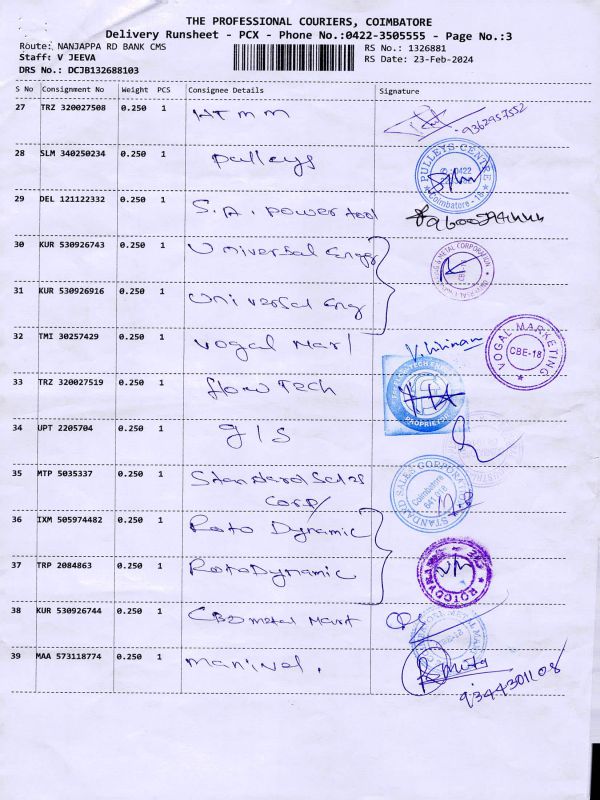 THE PROFESSIONAL COURIERS, COIMBATORE
Delivery Runsheet - PCX - Phone No.:0422-3505555 - Page No.:3
Route: NANJAPPA RD BANK CMS RS No.: 1326881
Staff: V JEEVA RS Date: 23-Feb-2024
DRS No.: DCJB132688103
S No Consignment No Weight PCS Consignee Details Signature
27 TRZ 320027508 0.250 1 HTMM 9362957552
28 SLM 340250234 0.250 1 Pulleys
PULLEYS CENTRE
0422
Coimbatore - 18
29 DEL 121122332 0.250 1 S.A. Power tool
30 KUR 530926743 0.250 1 Universal Engg
METAL CORPORATION
31 KUR 530926916 0.250 1 Universal Eng
32 TMI 30257429 0.250 1 Vogal Mar
VOGAL MARKETING
CBE-18
33 TRZ 320027519 0.250 1 flow Tech
PROPRIETOR
34 UPT 2205704 0.250 1 g/s
35 MTP 5035337 0.250 1 Standard Sales
Corp
STANDARD SALES CORPORATION
Coimbatore
641 018
36 IXM 505974482 0.250 1 Roto Dynamic
37 TRP 2084863 0.250 1 Roto Dynamic
38 KUR 530926744 0.250 1 metal Mart
39 MAA 573118774 0.250 1 manivel.
9344301108